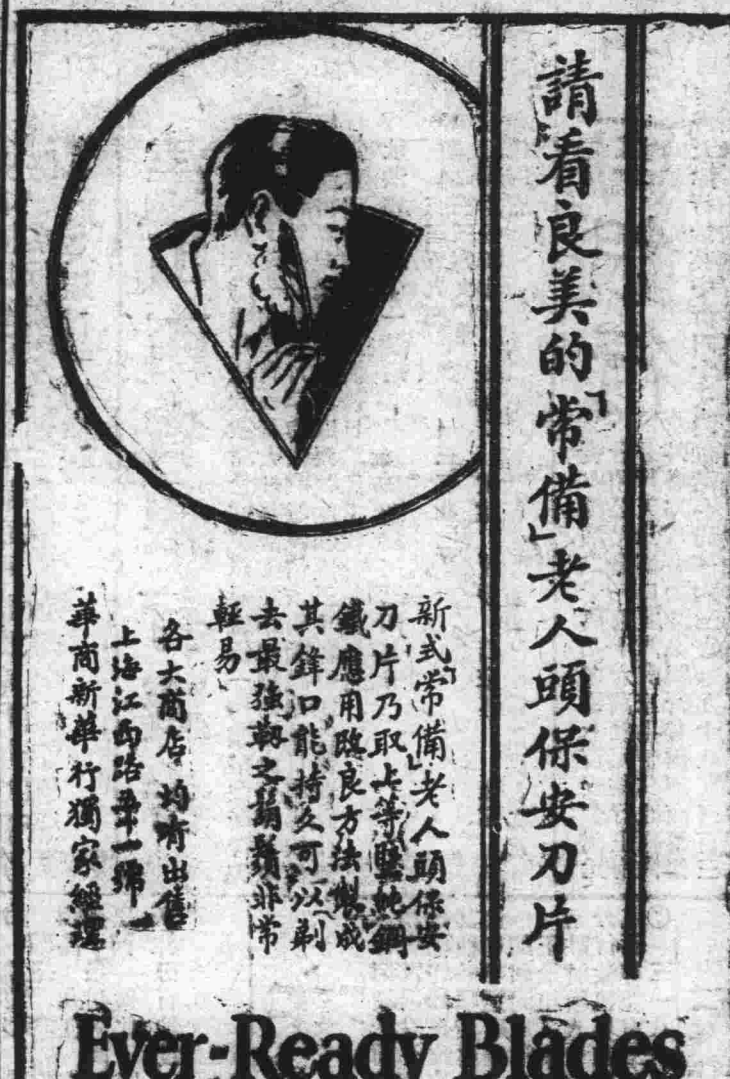 請看良美的「常備」老人頭保安刀片
新式「常備」老人頭保安
刀片乃取上等堅純鋼
鐵應用改良方法製成
其鋒口能持久可以剃
去最強韌之鬍鬚非常
輕易
各大商店均有出售
上海江西路第一號
華商新華行獨家經理
Ever-Ready Blades